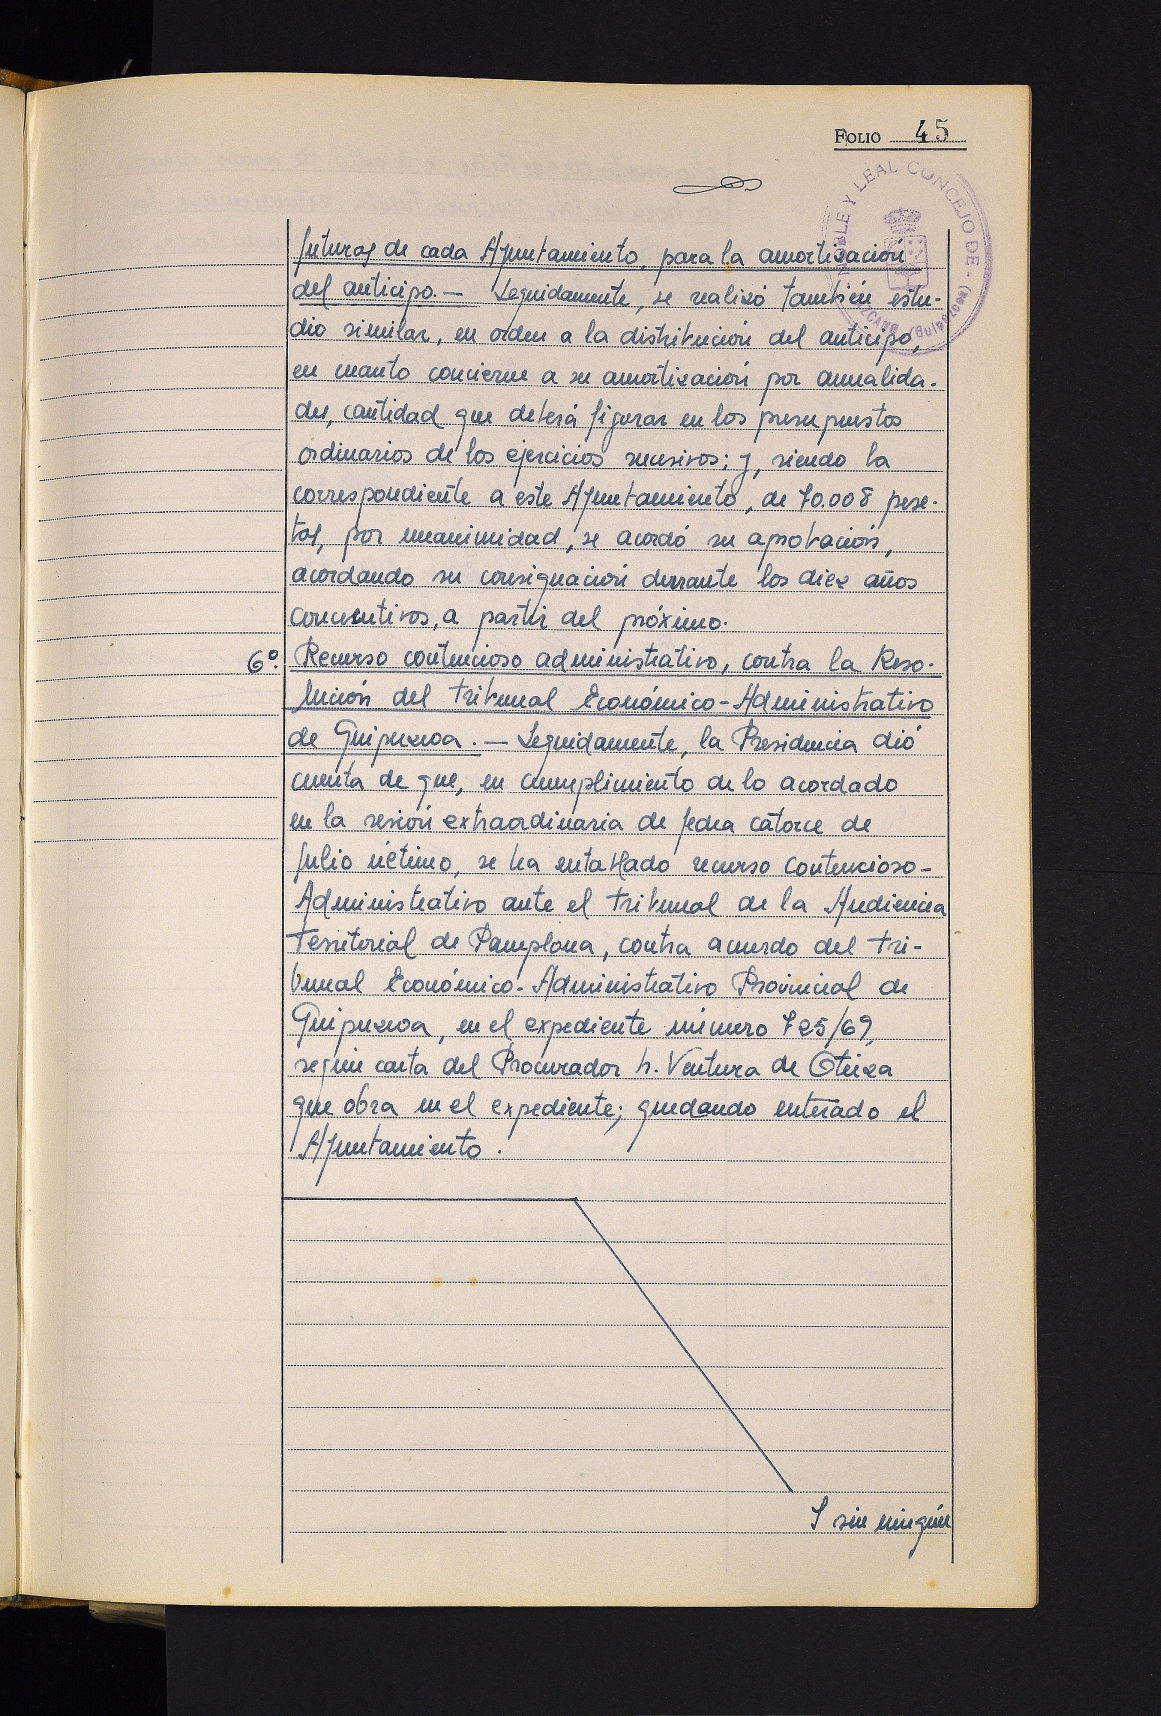 FOLIO 45
NOBLE Y LEAL CONCEJO DE - (Guipúzcoa)
futuras de cada Ayuntamiento, para la amortización
del anticipo.— Seguidamente, se realizó también estu-
dio similar, en orden a la distribución del anticipo,
en cuanto concierne a su amortización por annalida-
des, cantidad que deberá figurar en los presupuestos
ordinarios de los ejercicios sucesivos; y, siendo la
correspondiente a este Ayuntamiento, de 70.008 pese-
tas, por unanimidad, se acordó su aprobación,
acordando su consignación durante los diez años
concecutivos, a partir del próximo.
6º. Recurso contencioso administrativo, contra la Reso-
lución del tribunal Económico-Administrativo
de Guipuzcoa.— Seguidamente, la Presidencia dió
cuenta de que, en cumplimiento de lo acordado
en la sesión extraordinaria de fecha catorce de
Julio último, se ha entablado recurso contencioso-
Administrativo ante el tribunal de la Audiencia
Territorial de Pamplona, contra acuerdo del tri-
bunal Económico-Administrativo Provincial de
Guipuzcoa, en el expediente número 725/69,
según carta del Procurador Sr. Ventura de Oteiza
que obra en el expediente; quedando enterado el
Ayuntamiento.
Y sin ningún